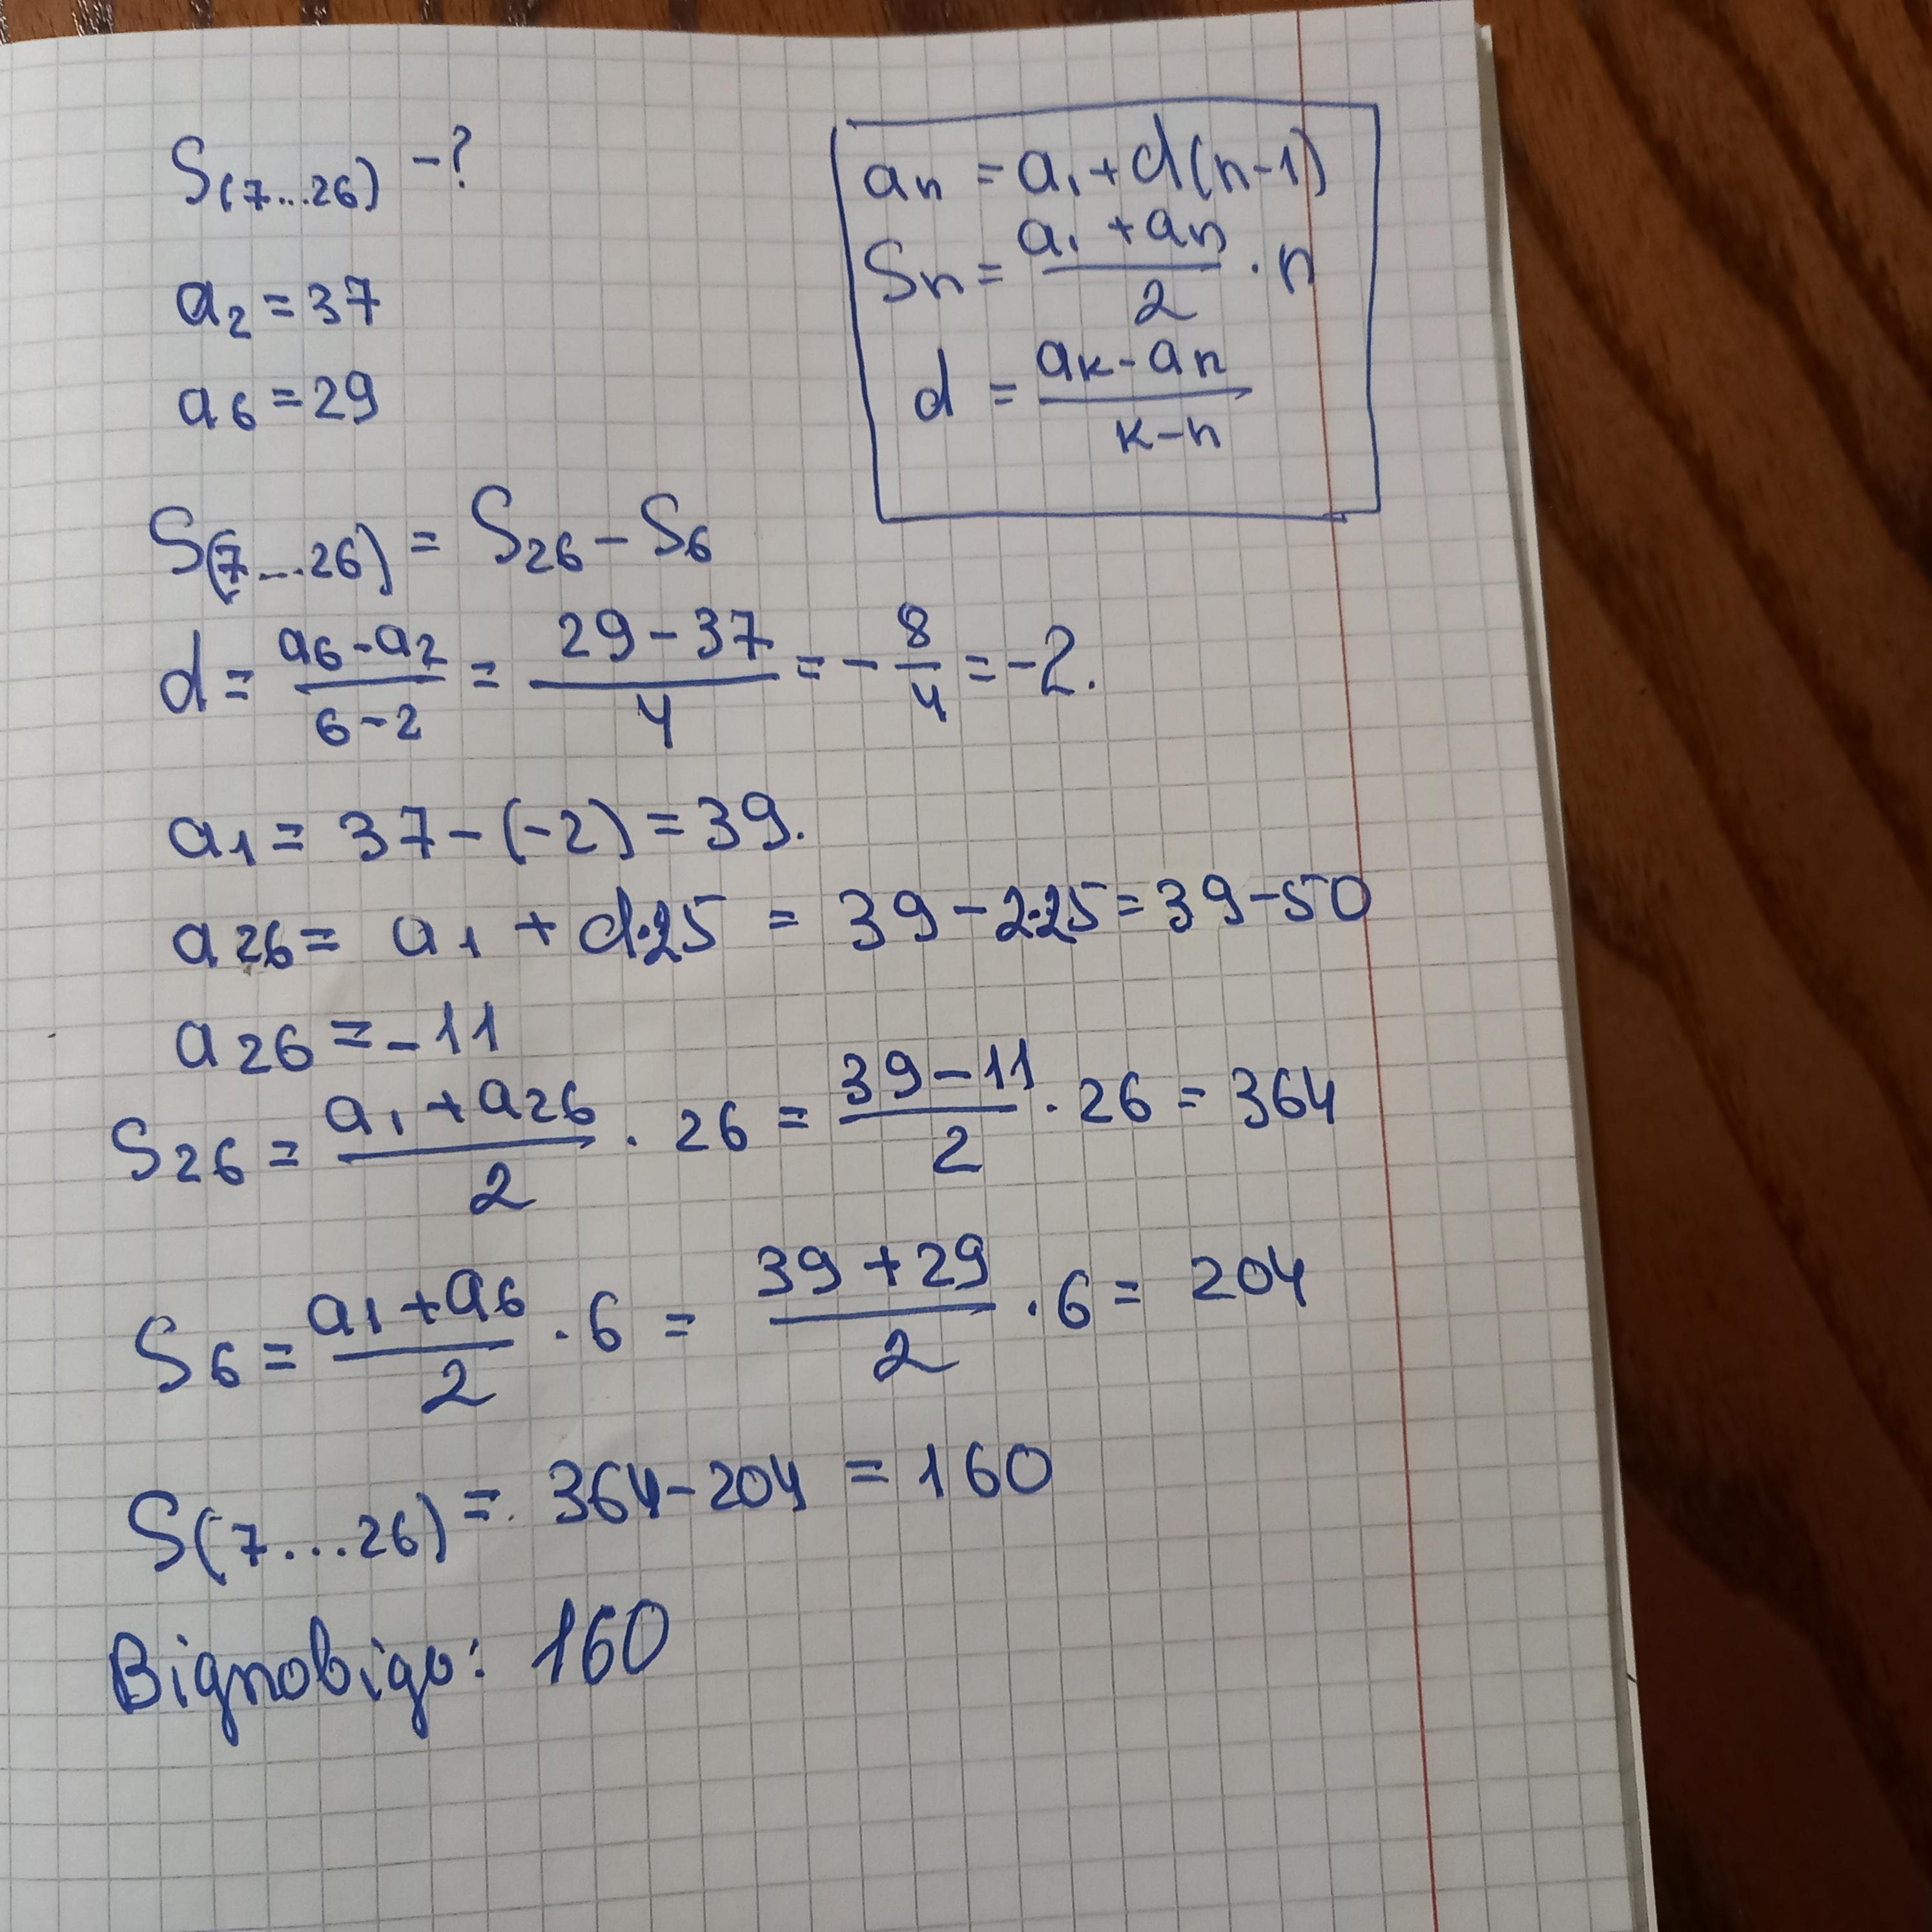 S(7...26) -?
a2 = 37
a6 = 29
an = a1 + d(n-1)
Sn = (a1 + an)/2 · n
d = (aк - an)/(к-n)
S(7...26) = S26 - S6
d = (a6 - a2)/(6-2) = (29-37)/4 = -8/4 = -2.
a1 = 37 - (-2) = 39.
a26 = a1 + d·25 = 39 - 2·25 = 39-50
a26 = -11
S26 = (a1 + a26)/2 · 26 = (39-11)/2 · 26 = 364
S6 = (a1 + a6)/2 · 6 = (39+29)/2 · 6 = 204
S(7...26) = 364-204 = 160
Відповідь: 160